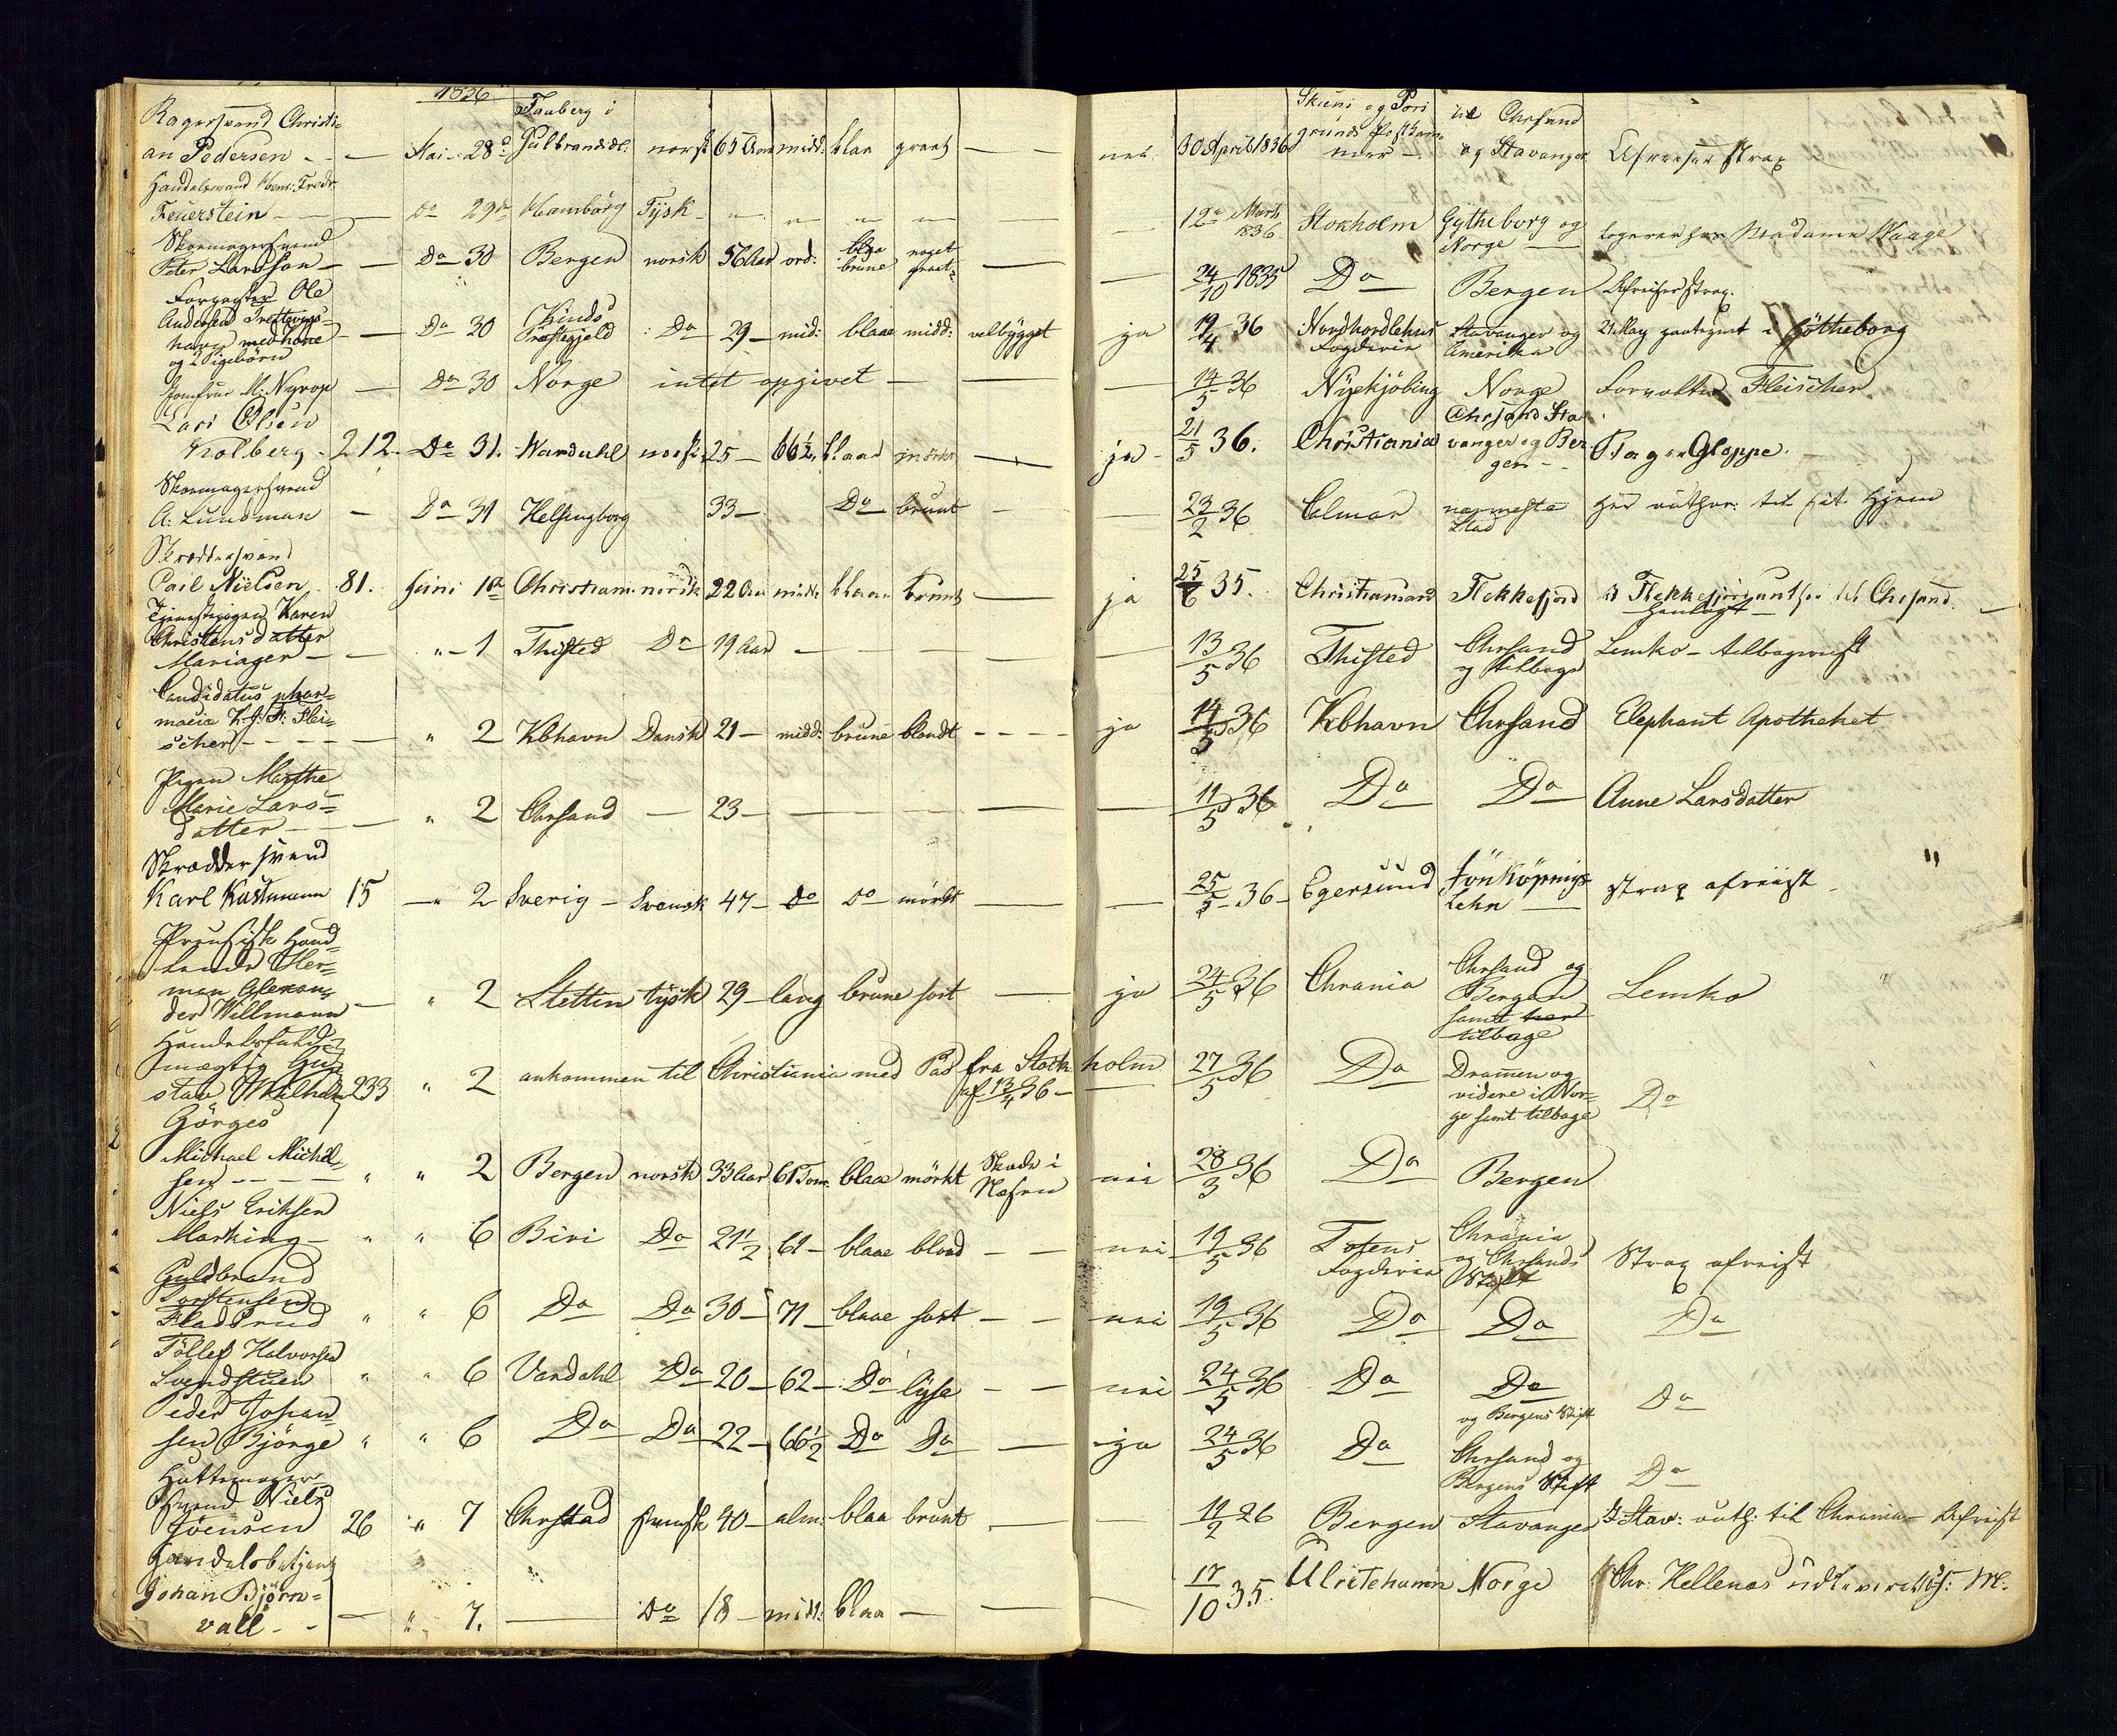 1836
Bagersvend Christi-
an Pedersen - - — Mai 28de Faaberg i Gulbrandsdl: norsk 65 Aar midd: blaa graat — — nei 30 April 1836 Skiens og Porsgrunds Postkammer — til Chrsand og Stavanger Afreiser strax
Handelsmand Henr: Fredr:
Feuerstein — — Do 29de Hamborg Tysk — — — — — — 12te Marts 1836 Stokholm Gøtheborg og Norge — logerer hos Madame Waage
Skomagersvend
Peter Larsson — — Do 30 Bergen norsk 56 Aar ord: blaa brune noget graat — — 24/10 1835 Do Bergen Afreiser strax.
Ole
Andersen
havn med Kone
og 2 Pigebörn — Do 30 Kinds Præstegjeld Do 29 — mid: blaae midd: velbygget ja 19/4 36 Nordhordlehns Fogderie Stavanger og Amerika 21 May paategnet i Götheborg
Jomfrue M: Nyrop — Do 30 Norge intet opgivet — — — 14/5 36 Nyekjöbing Norge Forvalter Fleischer
Lars Olsen
Kolberg - 212 - Do 31. Wardahl norsk 25 — 66½ blaae mörkt — ja - 21/5 36. Christiania Chrsand Stavanger og Bergen - - Gloppe.
Skomagersvend
A: Lundman — Do 31 Helsingborg 33 — Do brunt — — 23/2 36 Calmar nærmeste Stad her udfær: til sit Hjem
Skræddersvend
Poul Nielsen 81. Juni 1te Christians: norsk 22 Aar midd: blaae brunt — ja 25/6 35. Christiansand Flekkefjord i Flekkefjord til Chrsand.
Tjenestepigen Karen
Christensdatter
Mariager — — " — 1 Thisted Do 19 Aar — — — — — 13/5 36 Thisted Chrsand og tilbage Lemko - tilbagereist
Candidatus phar-
macia H. J. F: Flei-
scher - - - - — " 2 Kbhavn Dansk 21 — midd: brune blondt - - - - ja 14/5 36 Kbhavn Chrsand Elephant Apotheket
Pigen Marthe
Marie Lars-
datter - - — " 2 Chrsand — 23 — — — — — — 11/5 36 Do Do Anne Larsdatter
Skræddersvend
Karl Kastmann 15 — " 2 Sverig - Svensk 47 - Do Do mörkt — — 25/5 - 36 - Egersund Jönköpings Lehn — strax afreist - "
Preusisk Hand-
lende Her-
man Alexan-
der Willmann — " 2 Stettin tysk 29 — lang brune sort — ja 24/5 36 Chrania Chrsand og Bergen samt her tilbage Lemko
Handelsfuld-
mægtig Gu-
stav Wilhelm 233 " 2 ankommen til Christiania med Pas fra Stockholm af 13/4 36 — 27/5 36 Do Drammen og videre i Norge samt tilbage Do
Görges
Michael Michel-
sen - - - - " " 2 Bergen norsk 33 Aar 61 Tom: blaae mörkt Skade i Næsen nei 28/3 36 Do Bergen
Niels Eriksen
Marking — " " 6 Biri Do 21½ 61 — blaae blond — — nei 19/5 36 Totens Fogderie Chrania og Chrsands Stift Strax afreist
Guldbrand
Torstensen
Fladsrud " " 6 Do Do 30 — 71 — blaae sort — — nei 19/5 36 Do Do Do
Töllef Halvorsen
Svendstuen " " 6 Vardahl Do 20 — 62 — Do lyse — — nei 24/5 36 Do Do og Bergens Stift Do
Peder Johan-
sen Bjørge " " 6 Do Do 22 — 66½ Do Do — ja 24/5 36 Do Chrsand og Bergens Stift Do
Hattemager
Svend Niels
Joensen 26 " 7 Chrstad svensk 40 — alm: blaa brunt — — 11/2 26 Bergen Stavanger I Stav: udf: til Chrania — Afreist
Handelsbetjent
Johan Björn-
vall - - — " 7. — Do 18 — midd: blaa — — — 17/10 35. Ulricehamn Norge Chr: Hellenes M.